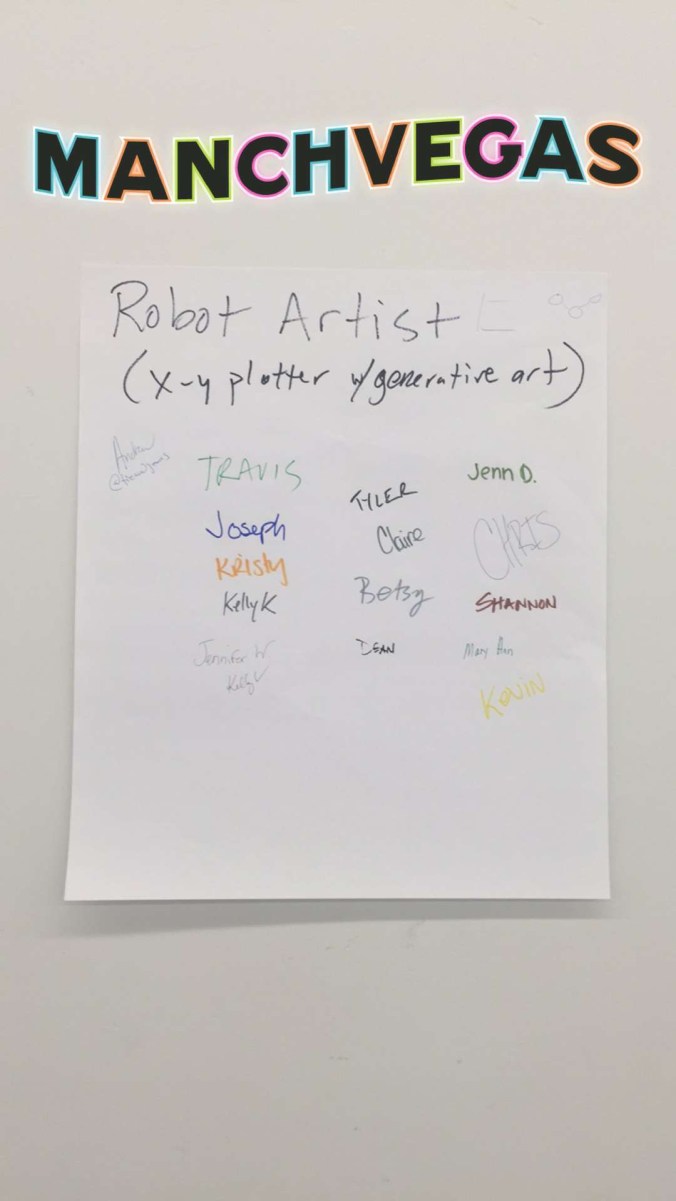 MANCHVEGAS
Robot Artist
(x-y plotter w/generative art)
TRAVIS
Joseph
KRisty
Kelly K
Jennifer W
Kelly V
TYLER
Claire
Betsy
DEAN
Jenn D.
CHRIS
SHANNON
Mary Ann
KEVIN